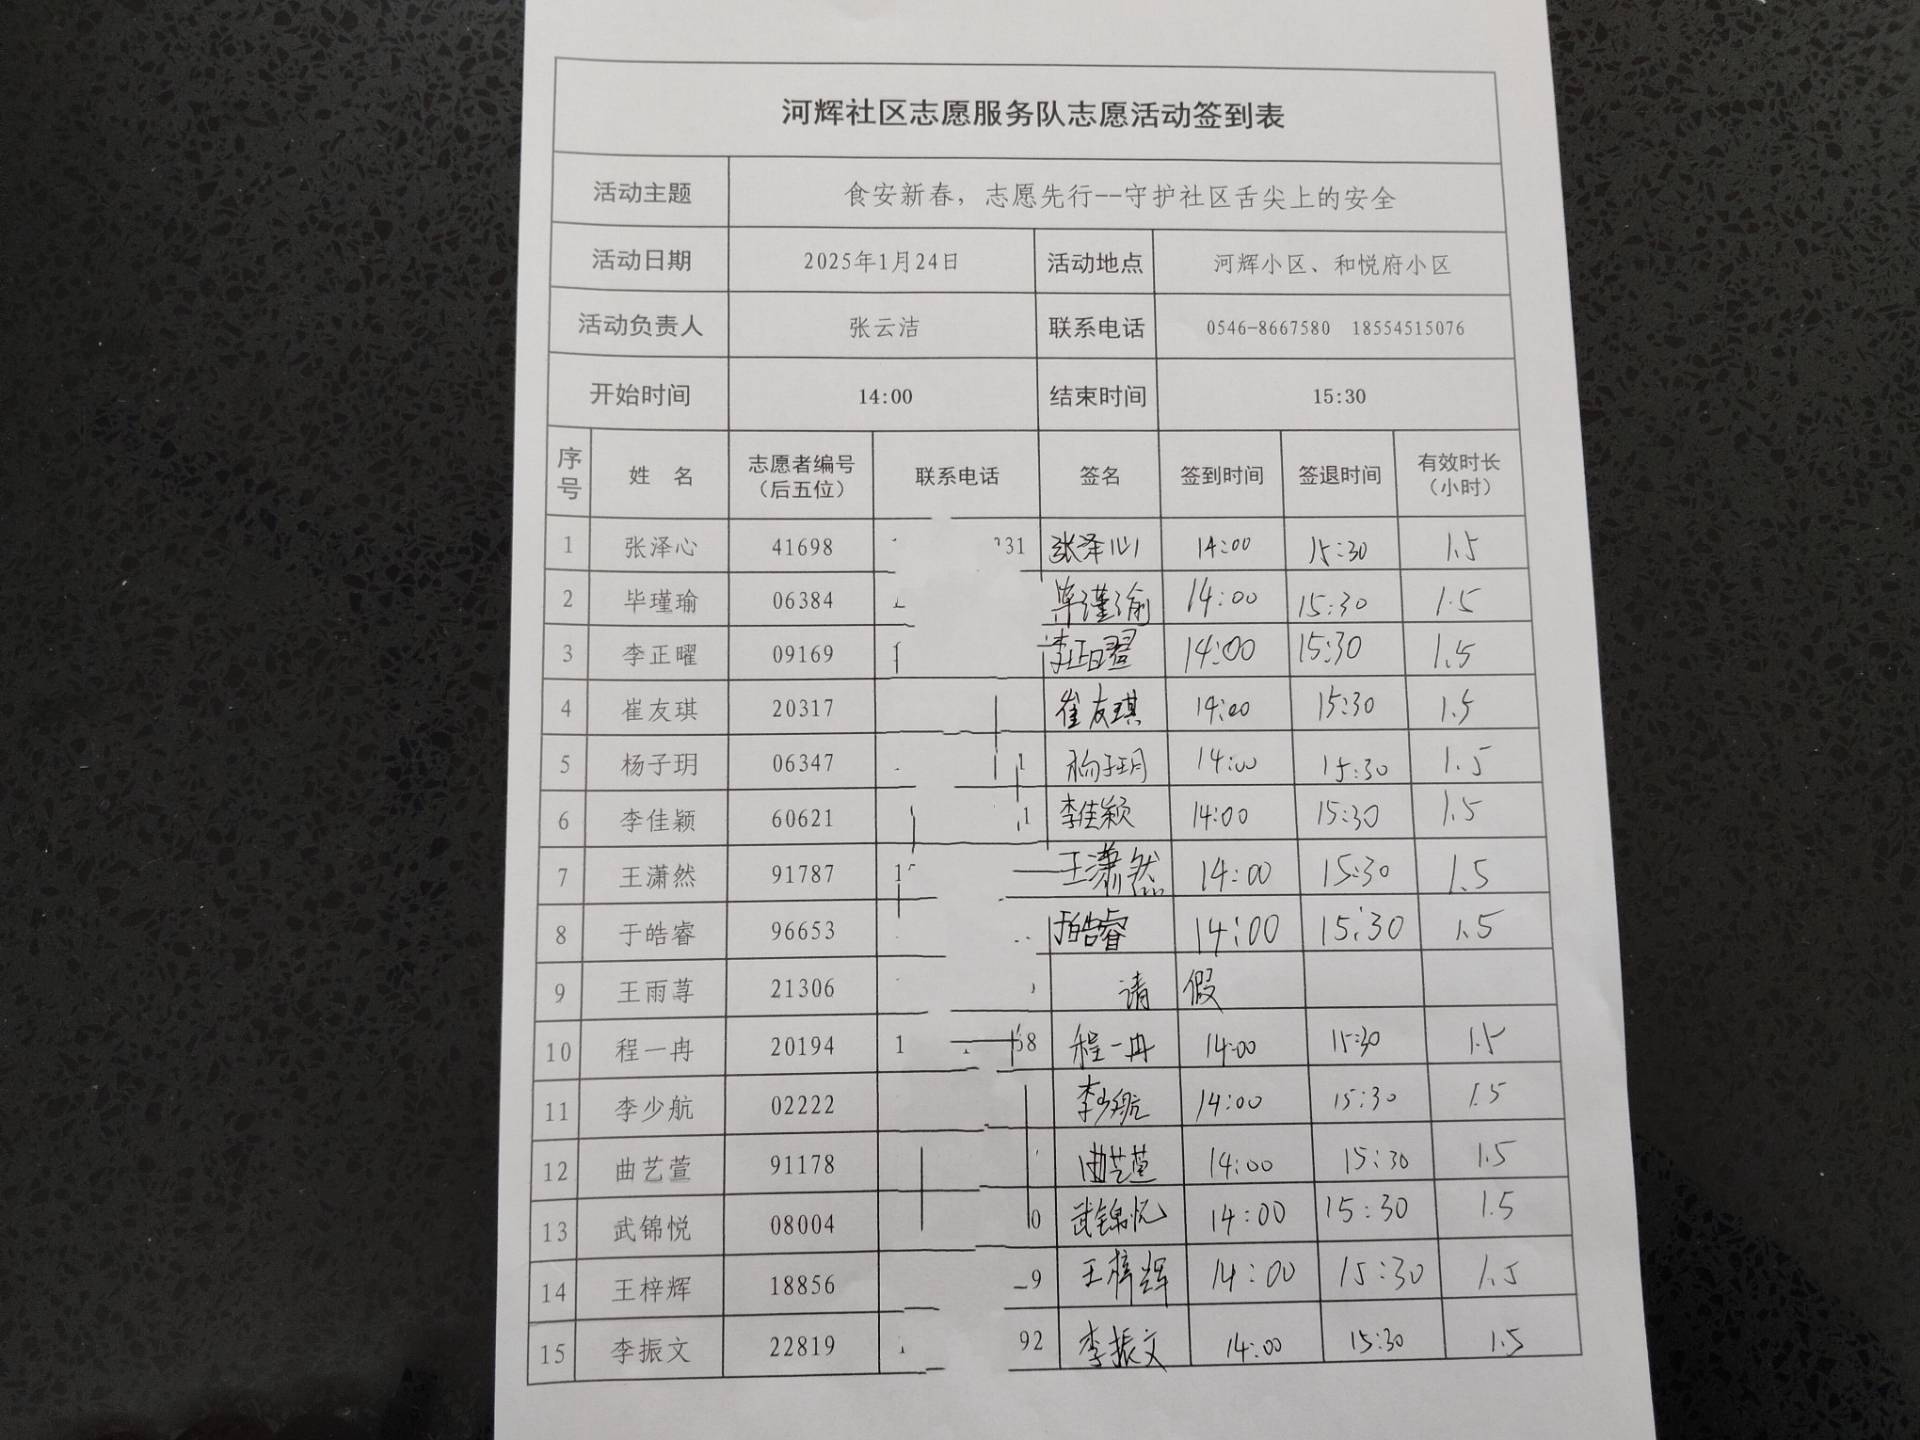 河辉社区志愿服务队志愿活动签到表
活动主题 食安新春，志愿先行--守护社区舌尖上的安全
活动日期 2025年1月24日 活动地点 河辉小区、和悦府小区
活动负责人 张云洁 联系电话 0546-8667580 18554515076
开始时间 14:00 结束时间 15:30
序号 姓 名 志愿者编号（后五位） 联系电话 签名 签到时间 签退时间 有效时长（小时）
1 张泽心 41698 31 张泽心 14:00 15:30 1.5
2 毕瑾瑜 06384 毕瑾瑜 14:00 15:30 1.5
3 李正曜 09169 李正曜 14:00 15:30 1.5
4 崔友琪 20317 崔友琪 14:00 15:30 1.5
5 杨子玥 06347 1 杨子玥 14:00 15:30 1.5
6 李佳颖 60621 1 李佳颖 14:00 15:30 1.5
7 王潇然 91787 1 王潇然 14:00 15:30 1.5
8 于皓睿 96653 于皓睿 14:00 15:30 1.5
9 王雨荨 21306 请假
10 程一冉 20194 1 8 程一冉 14:00 15:30 1.5
11 李少航 02222 李少航 14:00 15:30 1.5
12 曲艺萱 91178 曲艺萱 14:00 15:30 1.5
13 武锦悦 08004 0 武锦悦 14:00 15:30 1.5
14 王梓辉 18856 9 王梓辉 14:00 15:30 1.5
15 李振文 22819 92 李振文 14:00 15:30 1.5